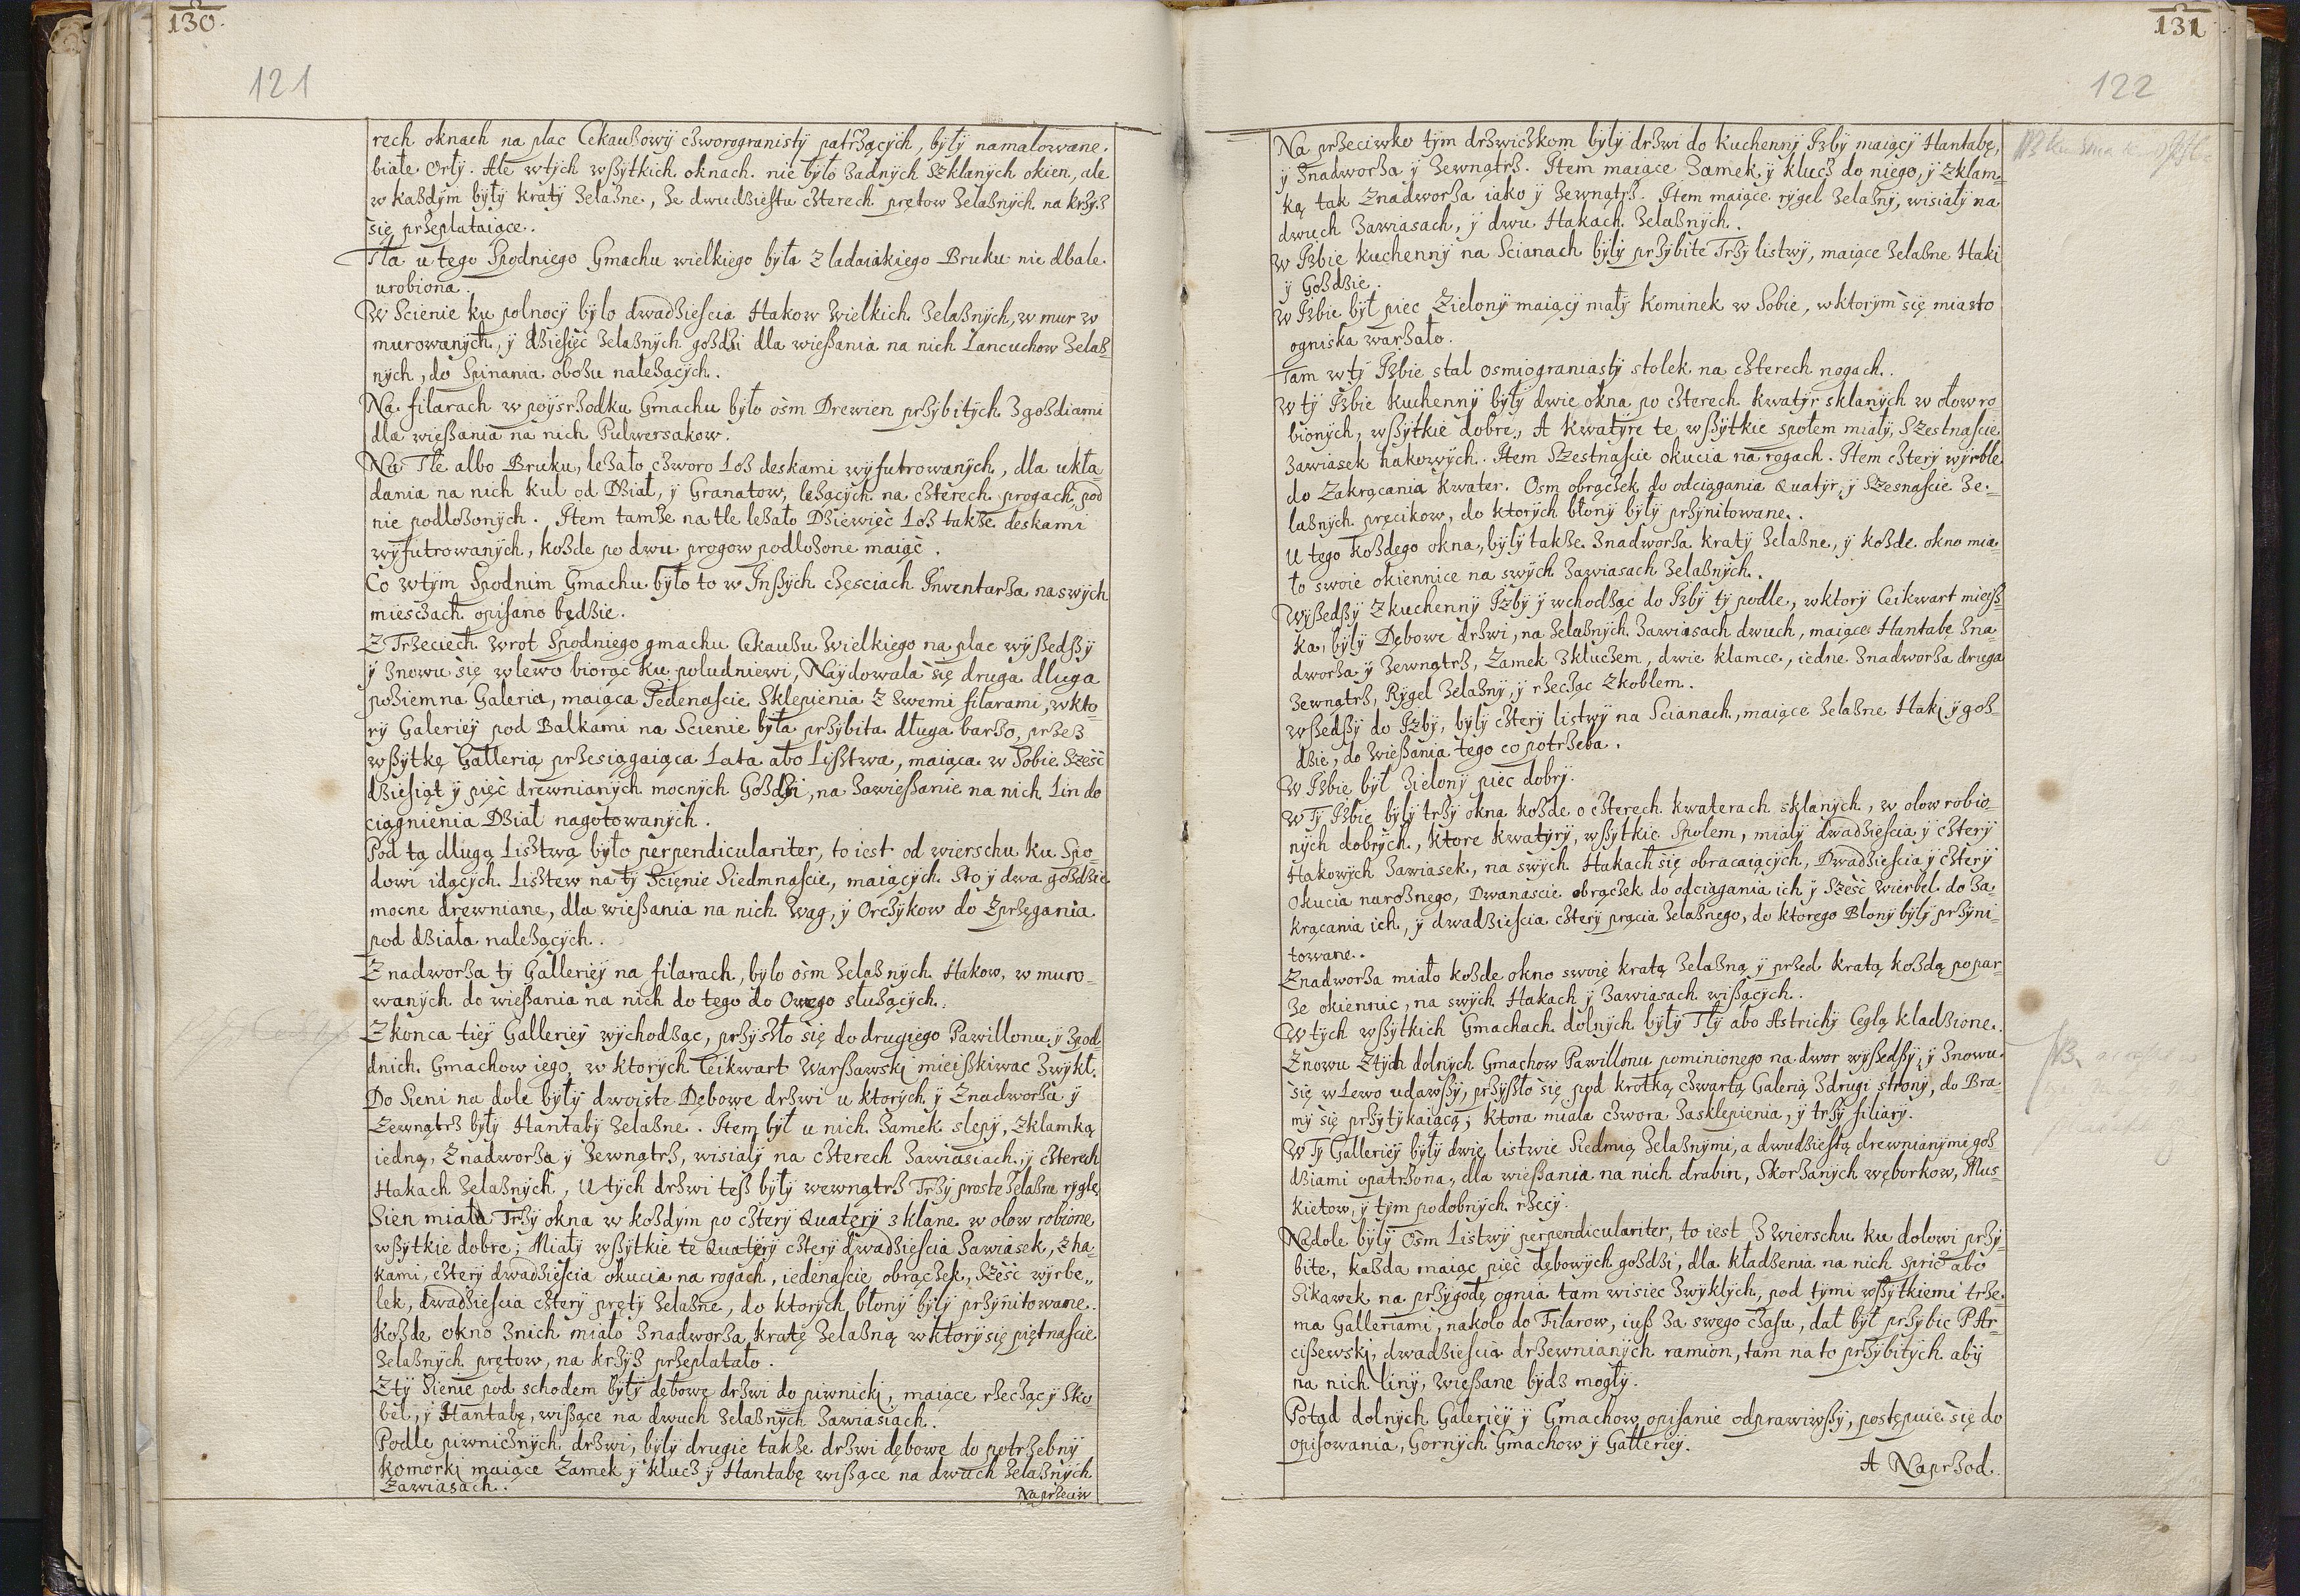 130
121
rech oknach na plac Cekaußowÿ cżworogranistÿ patrżącÿch, bÿłÿ namalowane.
białe Orłÿ. Ale wtÿch wßÿtkich oknach nie bÿło żadnÿch Szklanÿch okien, ale
w każdÿm bÿłÿ kratÿ żelazne, że dwudżiestu cżterech prętow żelaznÿch na krżÿż
się przeplataiące.
Tła u tego Spodniego Gmachu wielkiego bÿła z ladaiakiego Bruku nie dbale
urobiona.
W Scienie ku połnocÿ bÿlo dwadżiescia Hakow wielkich żelaznÿch, w mur w
murowanÿch, ÿ dżiesięć żelaznÿch gożdżi dla wießania na nich Lancuchow żelaz-
nÿch, do Spinania obozu należącÿch.
Na filarach w poÿsrżodku Gmachu bÿło osm Drewien przÿbitÿch z goździami
dla wießania na nich Pulwersakow.
Na Tle albo Bruku, leżało cżworo Loż deskami wÿfutrowanÿch, dla ukła-
dania na nich kul od Dżiał, ÿ Granatow, leżącÿch na cżterech progach pod
nie podlożonÿch. Item tamże na tle leżało Dżiewięć Loż także deskami
wÿfutrowanÿch, każde po dwu progow podlożone maiąc.
Co wtÿm Spodnim Gmachu bÿło to w Inßÿch cżęsciach Inwentarża na swÿch
mieścach opisano będżie.
Z Trżeciech wrot Spodniego gmachu Cekaużu Wielkiego na plac wÿßedßÿ
ÿ znowu się wlewo biorąc ku poludniewi, Naÿdowala się druga dluga
poziemna Galeria, maiąca Jedenascie Sklepienia z swemi filarami, w kto-
rÿ Galerieÿ pod Balkami na Scienie bÿła przÿbita długa barżo, przez
wßÿtkę Gallerią przesiągaiąca Lata abo Lisztwa, maiąca w Sobie Sześć
dżiesiąt ÿ pięć drewnianÿch mocnÿch Gożdżi, na zawießanie na nich Lin do
ciągnienia Dżiał nagotowanÿch.
Pod tą długą Lisztwą bÿło perpendiculariter, to iest od wierschu ku Spo-
dowi idącÿch Lisztew na tÿ Scięnie Siedmnascie, maiącÿch Sto ÿ dwa gożdżie
mocne drewniane, dla wießania na nich Wag, ÿ Orcżÿkow do Zprżęgania
pod dżiała należącÿch.
Z nadworża tÿ Gallerieÿ na filarach, bÿlo osm żelaznÿch Hakow, w muro-
wanÿch do wießania na nich do tego do Owego służącÿch.
Z konca tieÿ Gallerieÿ wÿchodżąc, przÿszło się do drugiego Pawillonu, ÿ Spod
dnich Gmachow iego, w ktorÿch Ceikwart Warßawski mieißkiwac zwÿkł.
Do Sieni na dole bÿłÿ dwoiste Dębowe drżwi u ktorÿch ÿ Znadworża ÿ
Zewnątrż bÿłÿ Hantabÿ żelazne. Item bÿł u nich Zamek slepÿ, z klamką
iedną, Znadworża ÿ Zewnątrż, wisiałÿ na cżterech Zawiasiach, ÿ cżterech
Hakach żelaznÿch, U tÿch drżwi teß bÿłÿ wewnątrż Trżÿ proste żelazne rÿgle,
Sien miała Trżÿ okna w każdÿm po cżterÿ Quaterÿ sklane w ołow robione
wßÿtkie dobre; Miałÿ wßÿtkie te Quaterÿ cżterÿ dwadżiescia Zawiasek, z ha-
kami, cżterÿ dwadżiescia okucia na rogach, iedenascie obrącżek, Sześć wÿrbe-
lek, dwadżiescia cżterÿ prętÿ żelazne, do ktorÿch błonÿ bÿłÿ przÿnitowane.
Każde okno znich miało znadworża kratę żelazną w ktorÿ się piętnascie
żelaznÿch prętow, na krżÿż przeplatało.
Z tÿ Sienie pod schodem bÿłÿ dębowe drżwi do piwnicki, maiące rżecżąc ÿ Sko-
bel, ÿ Hantabę, wißące na dwuch żelaznÿch Zawiasiach.
Podle piwnicżnÿch drżwi, bÿłÿ drugie także drżwi dębowe do potrżebnÿ
komorki maiące Zamek ÿ klucż ÿ Hantabę wißące na dwuch żelaznÿch
Zawiasach.
Naprżeciw
131
122
Na przeciwko tÿm drżwicżkom bÿłÿ drżwi do kuchennÿ Izbÿ maiącÿ Hantabę,
ÿ Znadworża ÿ Zewnątrż. Item maiące Zamek, ÿ klucż do niego, ÿ z klam-
ką tak Znadworża iako ÿ Zewnątrż. Item maiące rÿgel żelaznÿ, wisiałÿ na
dwuch Zawiasach, ÿ dwu Hakach żelaznÿch.
W Izbie kuchennÿ na Scianach bÿłÿ przÿbite Trżÿ listwÿ, maiące żelazne Haki
ÿ Gożdżie.
W Izbie bÿł piec Zielonÿ maiącÿ małÿ kominek w Sobie, w ktorÿm się miasto
ogniska warżało.
Tam w tÿ Izbie stal osmiograniastÿ stolek na cżterech nogach.
W tÿ Izbie kuchennÿ bÿłÿ dwie okna po cżterech kwatÿr sklanÿch w ołow ro-
bionÿch, wßÿtkie dobre, A kwatÿre te wßÿtkie społem miałÿ, Szestnascie
Zawiasek hakowÿch. Item Szestnascie okucia na rogach. Item cżterÿ wÿrble
do Zakrącania kwater. Osm obrącżek do odciągania Quatÿr, ÿ Szesnascie że-
laznÿch pręcikow, do ktorÿch błonÿ bÿłÿ przÿnitowane.
U tego każdego okna, bÿłÿ także Znadworża kratÿ żelazne, ÿ każde okno mia-
ło swoie okiennice na swÿch Zawiasach żelaznÿch.
Wÿßedßÿ z kuchennÿ Izbÿ ÿ wchodżąc do Izbÿ tÿ podle, w ktorÿ Ceikwart mieiß-
ka, bÿłÿ Dębowe drżwi, na żelaznÿch Zawiasach dwuch, maiące Hantabe Zna-
dworża ÿ Zewnątrż, Zamek z kluczem, dwie klamce, iedne Znadworża druga
Zewnątrż, Rÿgel żelaznÿ, ÿ rżecżąc z koblem.
Wßedßÿ do Izbÿ, bÿłÿ cżterÿ listwÿ na Scianach, maiące żelazne Haki ÿ goż-
dżie, do wießania tego co potrżeba.
W Izbie bÿł Zielonÿ piec dobrÿ.
W Tÿ Izbie bÿłÿ trżÿ okna każde o cżterech kwaterach sklanÿch, w ołow robio-
nÿch dobrÿch, ktore kwatÿrÿ, wßÿtkie Społem, miałÿ dwadżiescia ÿ cżterÿ
Hakowÿch Zawiasek, na swÿch Hakach się obracaiącÿch, Dwadżiescia ÿ cżterÿ
Okucia narożnego, Dwanascie obrącżek do odciągania ich ÿ Sześć wierbel do za-
krącania ich, ÿ dwadżiescia cżterÿ prącia żelaznego, do ktorego Błonÿ bÿłÿ przÿni-
towane.
Znadworża miało każde okno swoię kratą żelazną ÿ przed kratą każdą po par-
że okiennic, na swÿch Hakach ÿ Zawiasach wißącÿch.
W tÿch wßÿtkich Gmachach dolnÿch bÿłÿ Tłÿ abo Astrichÿ Cegłą kladżione.
Znowu Ztÿch dolnÿch Gmachow Pawillonu pominionego na dwor wÿßedßÿ, ÿ znowu
się w Lewo udawßÿ, przÿßło się pod krotką cżwartą Galerią z drugi stronÿ, do Bra-
mÿ się przÿtÿkaiącą, ktora miala cżwora Zasklepienia, ÿ trżÿ filiarÿ.
W Tÿ Gallerieÿ bÿłÿ dwie listwie Siedmią żelaznÿmi, a dwudżiestą drewnianÿmi goż
dżiami opatrżona, dla wießania na nich drabin, Skorżanÿch węborkow, Mus-
kietow, ÿ tÿm podobnÿch rżecÿ.
Nadole bÿłÿ Osm Listwÿ perpendiculariter, to iest Z wierschu ku dołowi przÿ-
bite, każda maiąc pięć dębowÿch gożdżi, dla kładżenia na nich spric abo
Sikawek na przÿgodę ognia tam wisiec zwÿklÿch, pod tÿmi wßÿtkiemi trże-
ma Galleriami, nakoło do Filarow, iuß za swego cżasu, dał bÿł przÿbic P. Ar-
cißewski, dwadżiescia drżewnianÿch ramion, tam na to przÿbitÿch abÿ
na nich linÿ, wießane bÿdż mogłÿ.
Potąd dolnÿch Galerieÿ ÿ Gmachow opisanie odprawiwßÿ, postępuie się do
opisowania, Gornÿch Gmachow ÿ Gallerieÿ.
A Naprżod.